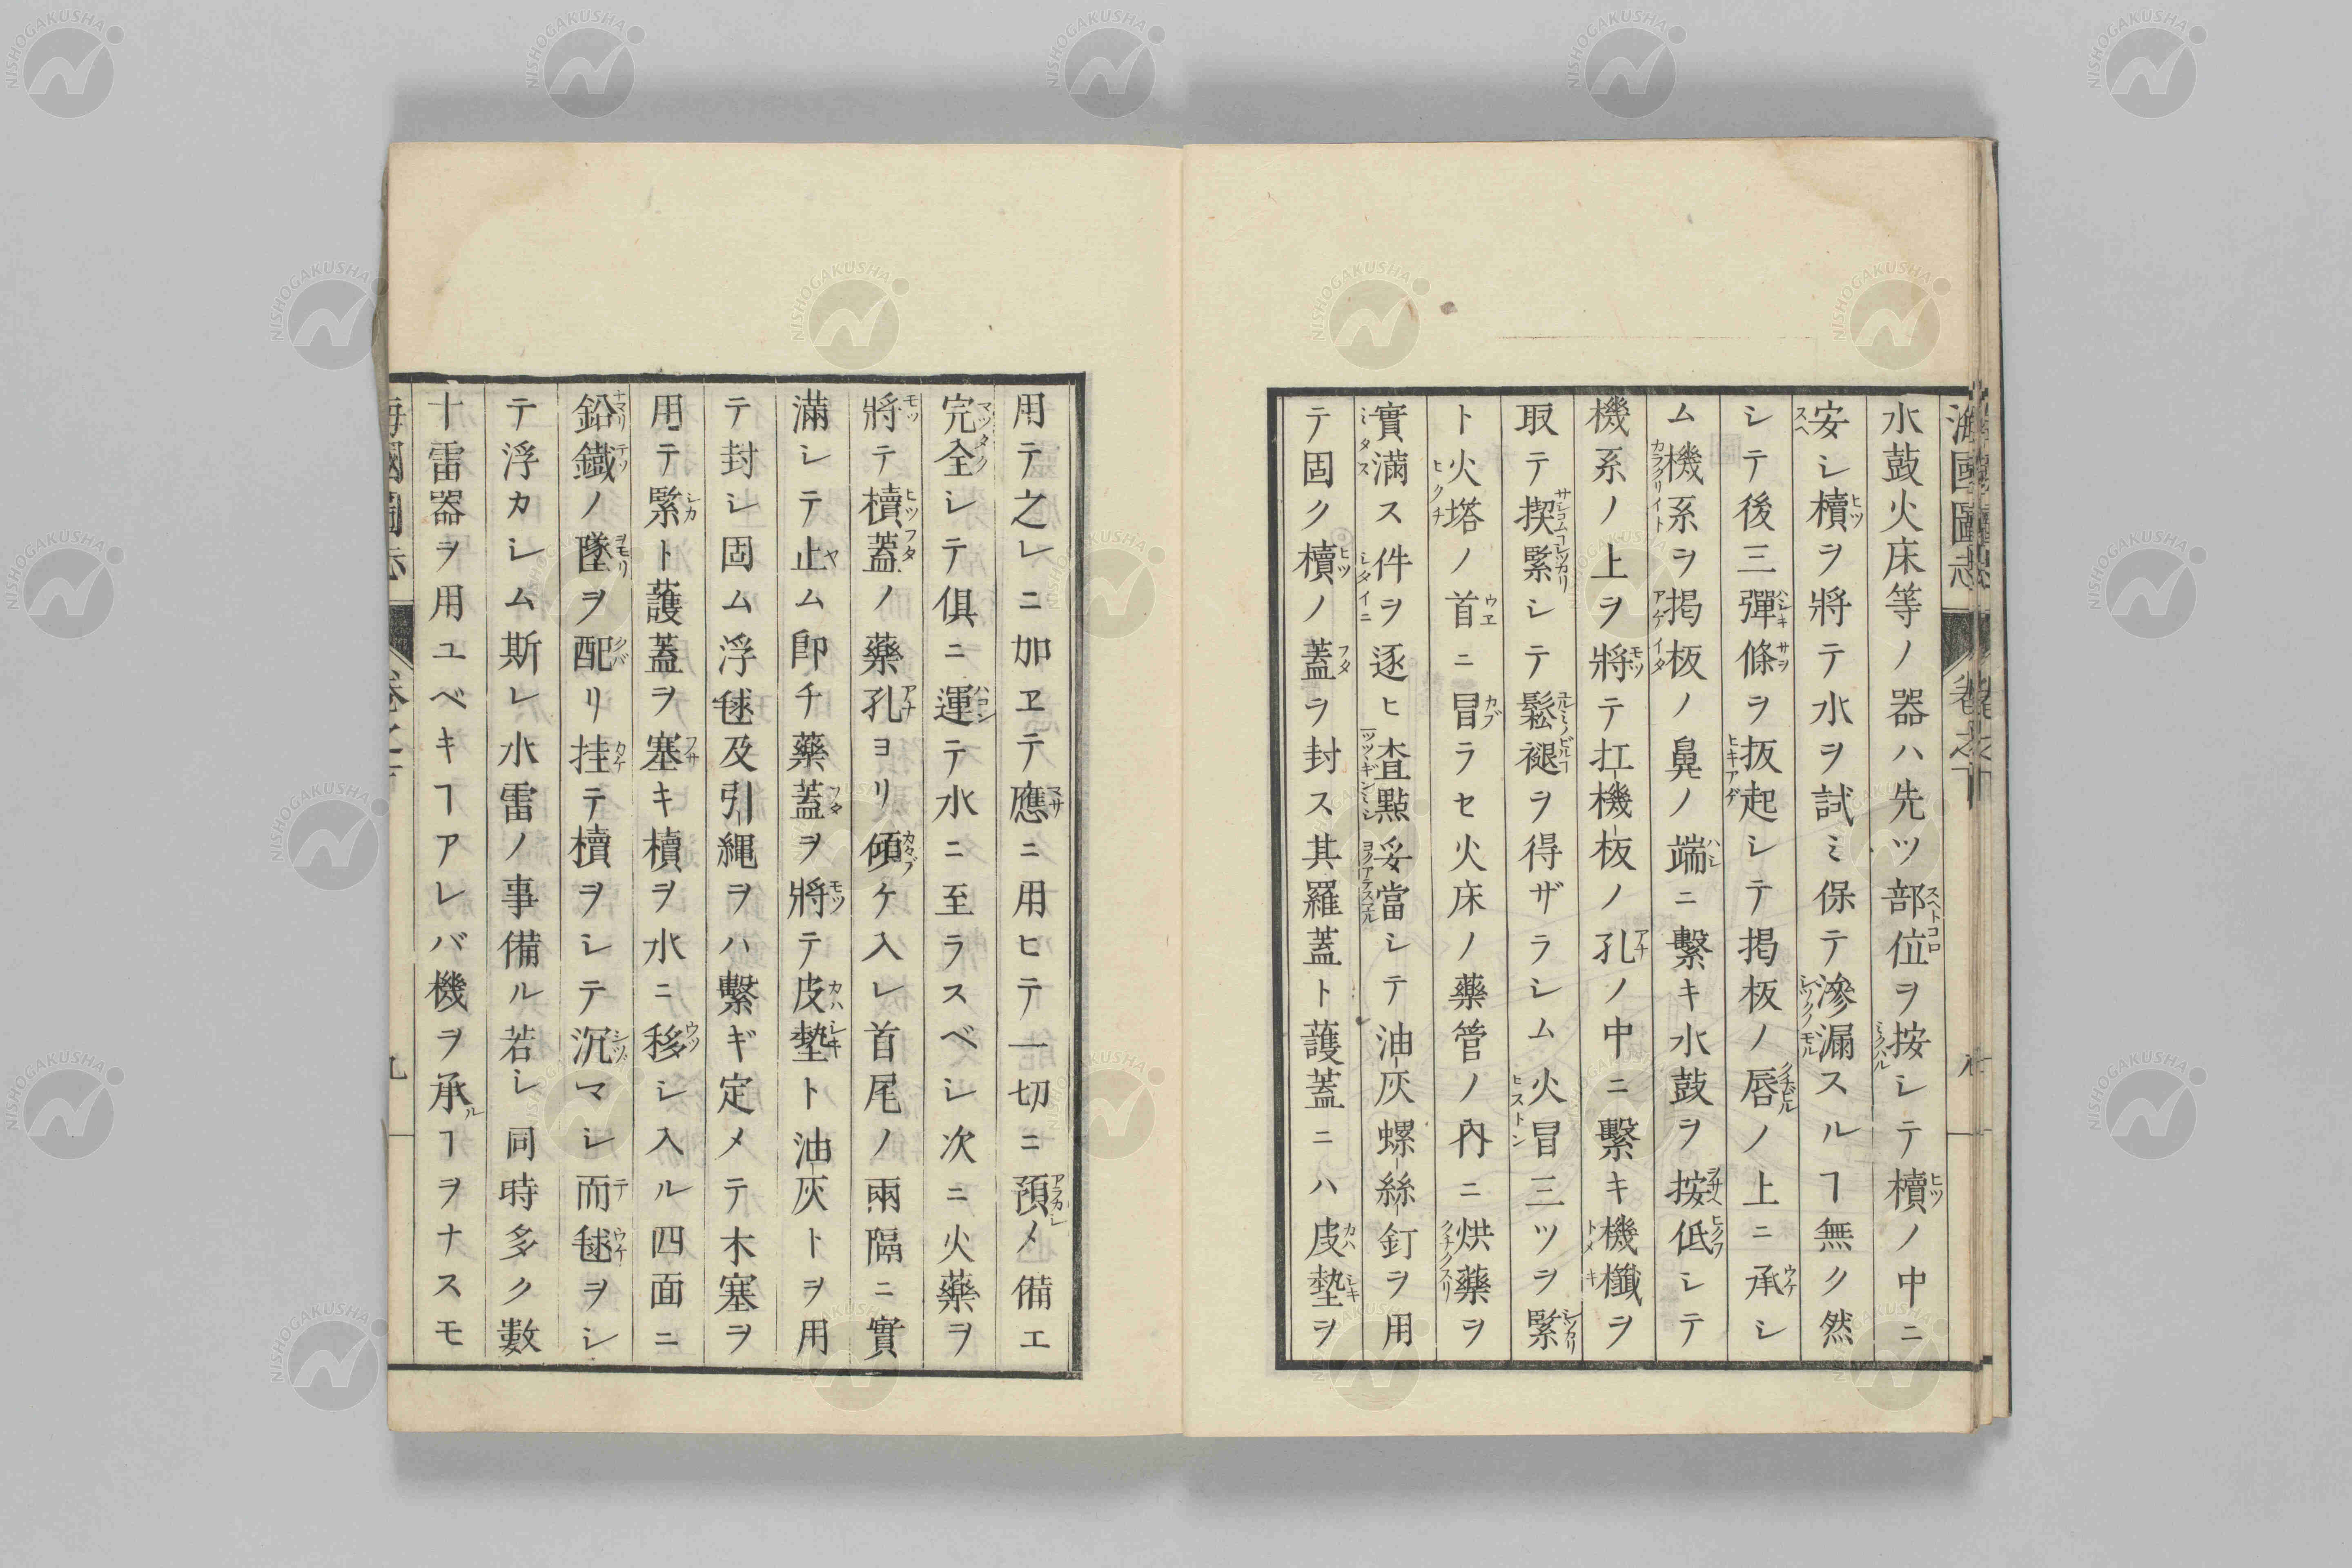 海國圖志
卷之下
水鼓火床等ノ器ハ先ツ部位ヲ按シテ櫝ノ中ニ
安シ櫝ヲ將テ水ヲ試ミ保テ滲漏スルヿ無ク然
シテ後三彈條ヲ扳起シテ掲板ノ唇ノ上ニ承シ
ム機系ヲ掲板ノ鼻ノ端ニ繫キ水鼓ヲ按低シテ
機系ノ上ヲ將テ扛機板ノ孔ノ中ニ繫キ機櫼ヲ
取テ揳緊シテ鬆褪ヲ得ザラシム火冒三ツヲ緊
ト火塔ノ首ニ冒ラセ火床ノ藥管ノ內ニ烘藥ヲ
實滿ス件ヲ逐ヒ査點妥當シテ油灰螺絲釘ヲ用
テ固ク櫝ノ蓋ヲ封ス其羅蓋ト護蓋ニハ皮墊ヲ
用テ之レニ加ヱテ應ニ用ヒテ一切ニ預メ備エ
完全シテ俱ニ運テ水ニ至ラスベシ次ニ火藥ヲ
將テ櫝蓋ノ藥孔ヨリ傾ケ入レ首尾ノ兩隔ニ實
滿シテ止ム卽チ藥蓋ヲ將テ皮墊ト油灰トヲ用
テ封シ固ム浮毬及引繩ヲハ繫ギ定メテ木塞ヲ
用テ緊ト護蓋ヲ塞キ櫝ヲ水ニ移シ入ル四面ニ
鉛鐵ノ墜ヲ配リ挂テ櫝ヲシテ沉マシ而毬ヲシ
テ浮カシム斯レ水雷ノ事備ル若シ同時多ク數
十雷器ヲ用ユベキヿアレバ機ヲ承ルヿヲナスモ
海國圖志
九